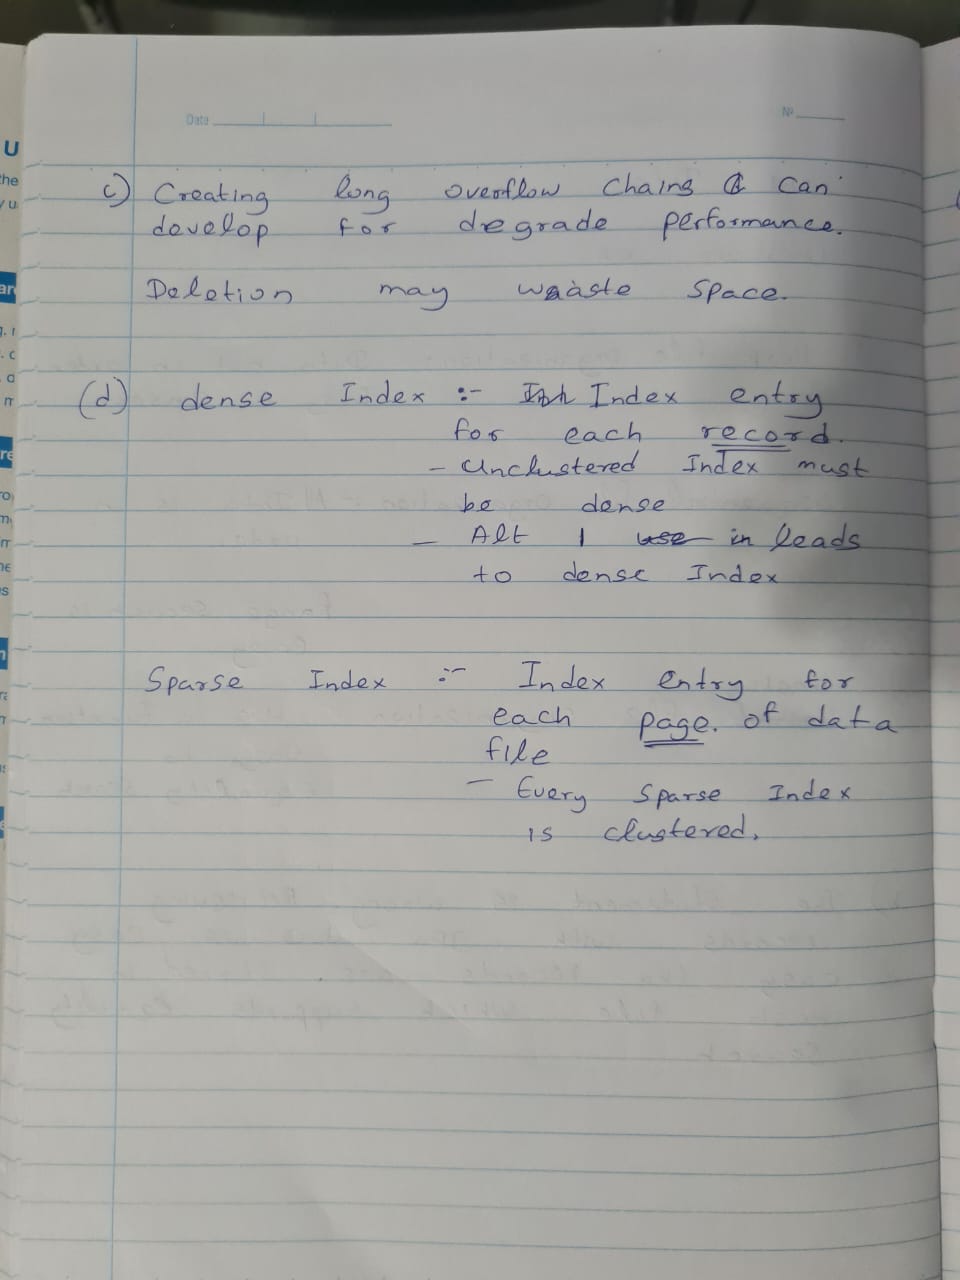 Date
No
c) Creating long overflow chains & can
develop for degrade performance.
Deletion may waste space.
(d) dense Index :- Index entry
for each record.
- Unclustered Index must
be dense
- Alt 1 use in leads
to dense Index
Sparse Index :- Index entry for
each page. of data
file
- Every Sparse Index
is clustered.